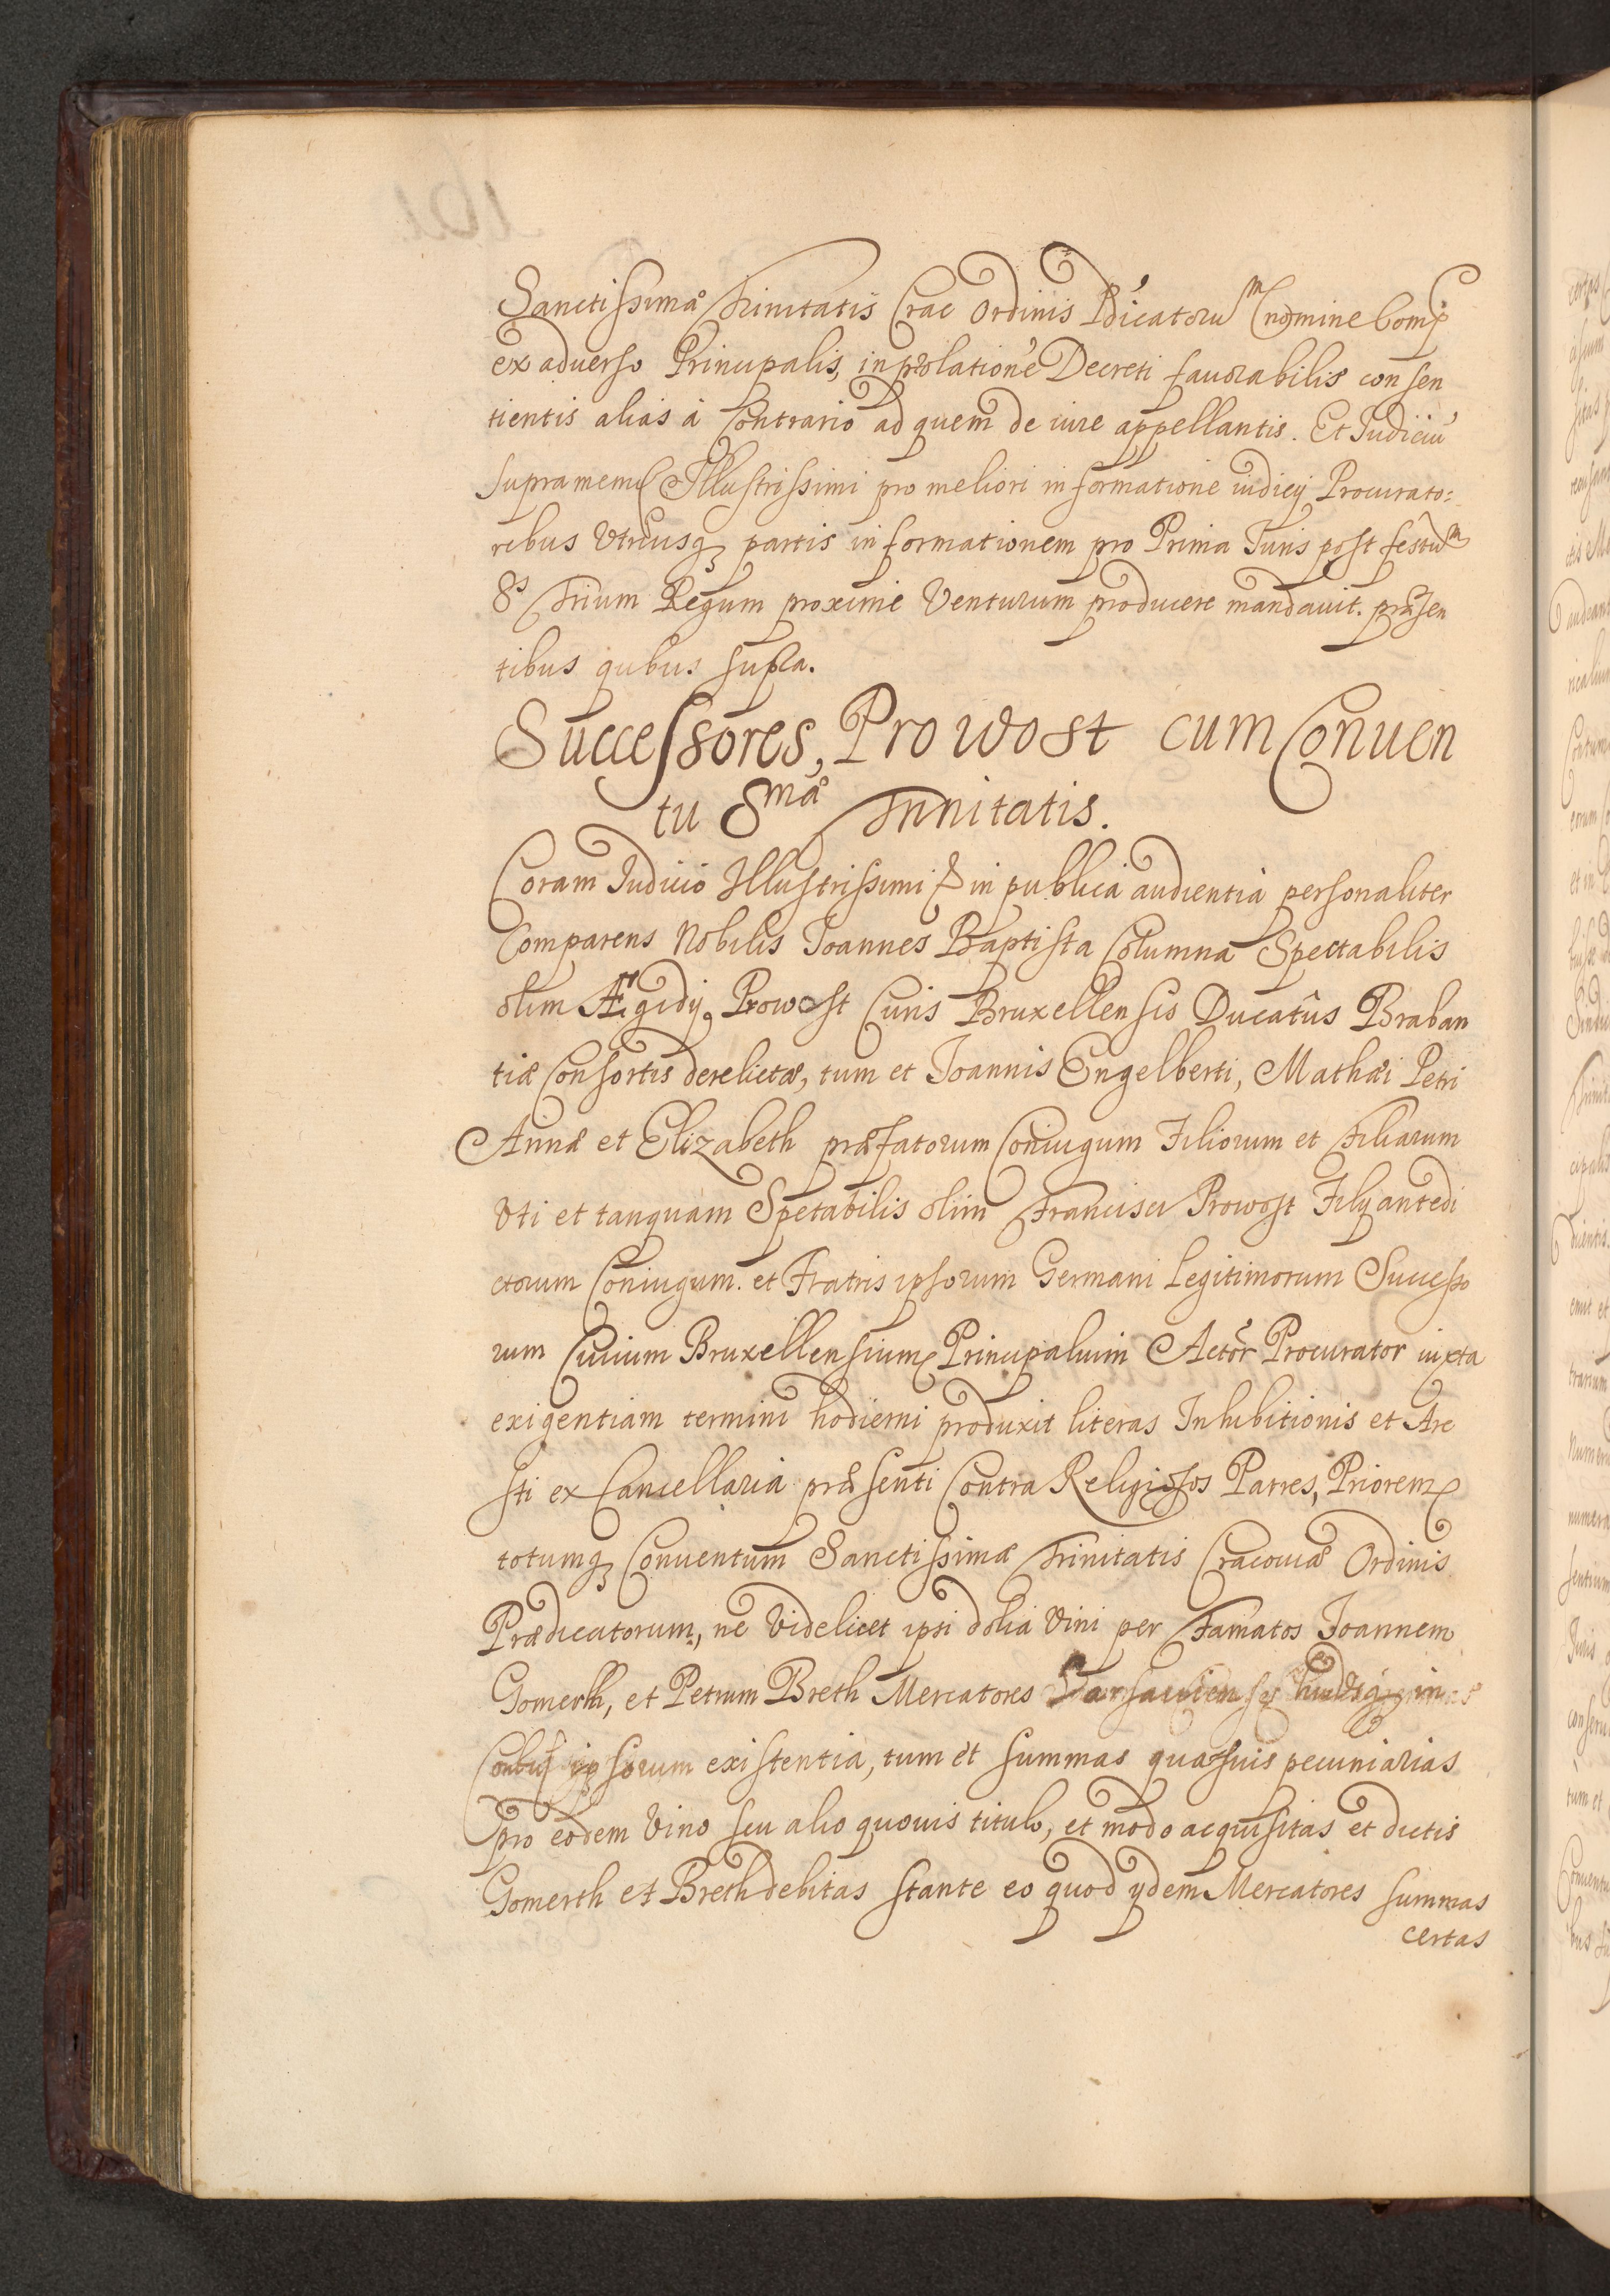 Sanctissimæ Trinitatis Crac Ordinis Pdicatorum nomine Comp
ex aduerso Principalis, in prolatione Decreti fauorabilis consen
tientis aliàs à Contrario ad quem de iure appellantis. Et Iudiciu
supramem Illustrissimi pro meliori informatione iudicij Procurato:
ribus Vtriusq partis informationem pro Prima Iuris post festum
SS Trium Regum proximè Venturum producere mandauit. præsen
tibus quibus supra.
Successores, Prowost cum Conuen
tu Smæ Trinitatis.
Coram Iudicio Illustrissimi & in publica audientia personaliter
Comparens Nobilis Ioannes Baptista Columna Spectabilis
olim Ægidij Prowost Ciuis Bruxellensis Ducatûs Braban
tiæ Consortis derelictæ, tum et Ioannis Engelberti, Mathæi Petri
Annæ et Elizabeth præfatorum Coniugum Filiorum et Filiarum
Vti et tanquam Spetabilis olim Francisci Prowost Filij antedi
ctorum Coniugum. et Fratris ipsorum Germani Legitimorum Successo
rum Ciuium Bruxellensium Principalium Actor Procurator iuxta
exigentiam termini hodierni produxit literas Inhibitionis et Are
sti ex Cancellaria præsenti Contra Religiosos Patres, Priorem
totumq Conuentum Sanctissimæ Trinitatis Cracouiæ Ordinis
Prædicatorum, ne Videlicet ipsi dolia Vini per Famatos Ioannem
Gomerth, et Petrum Breth Mercatores Varsauienses in
ipsorum existentia, tum et summas quasuis pecuniarias
pro eodem Vino seu alio quouis titulo, et modo acquisitas et dictis
Gomerth et Breth debitas stante eo quod ijdem Mercatores summas
certas